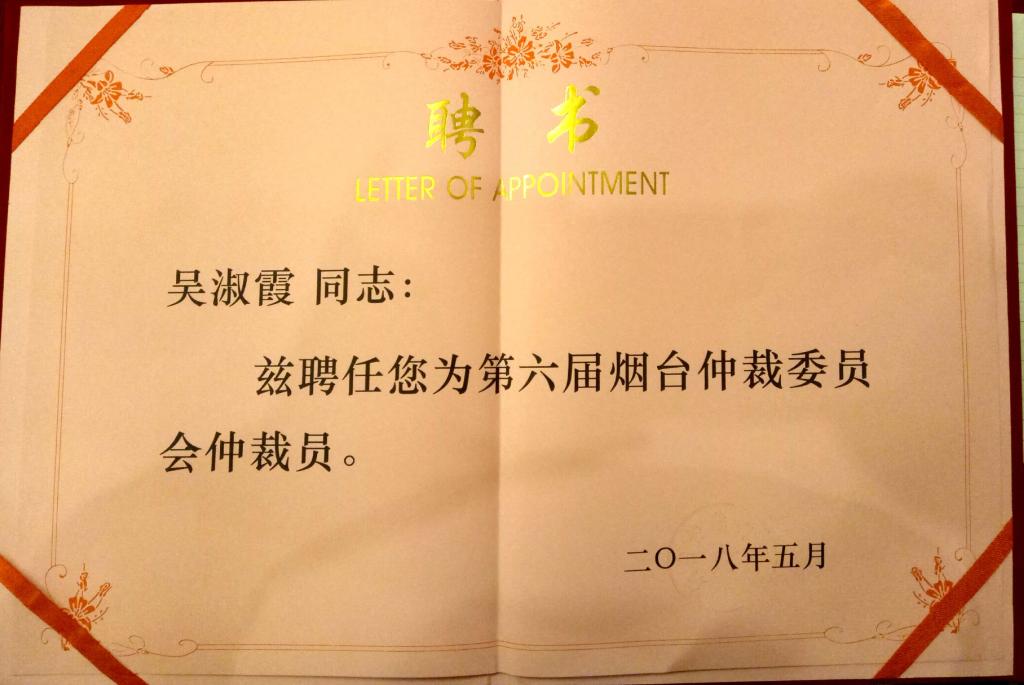 聘 书
LETTER OF APPOINTMENT
吴淑霞 同志：
兹聘任您为第六届烟台仲裁委员
会仲裁员。
二〇一八年五月